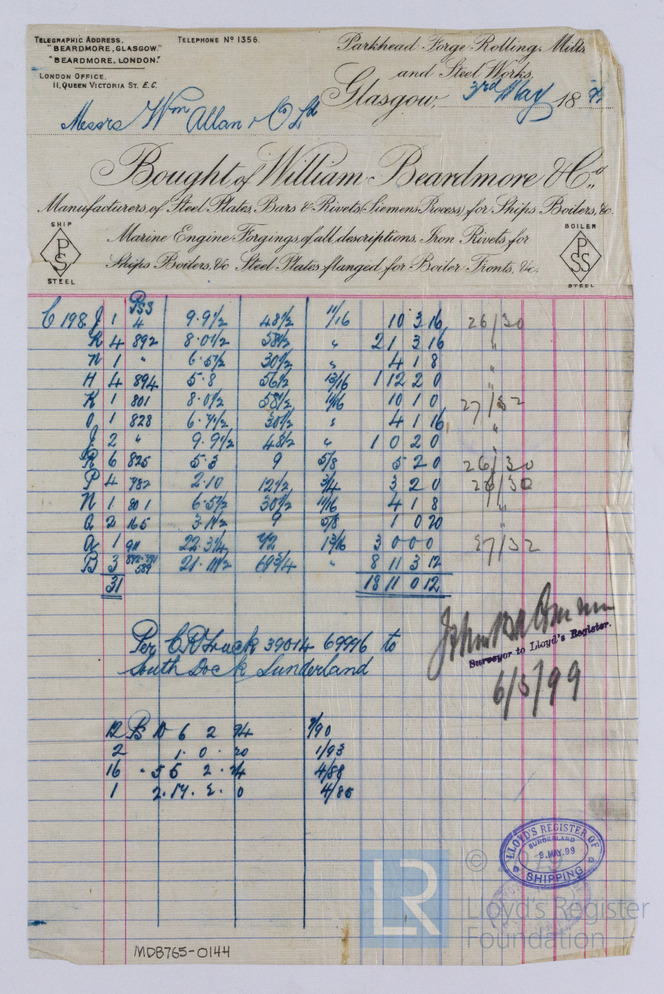 TELEGRAPHIC ADDRESS.
"BEARDMORE, GLASGOW."
"BEARDMORE, LONDON."
TELEPHONE No 1356.
LONDON OFFICE.
11, QUEEN VICTORIA ST. E.C.
Parkhead Forge Rolling Mills,
and Steel Works,
Glasgow, 3rd May 18
Messrs Wm Allan & Co Ld
Bought of William Beardmore & Co.,
Manufacturers of Steel Plates, Bars & Rivets (Siemens Process) for Ships Boilers, &c.
Marine Engine Forgings of all descriptions, Iron Rivets for
Ships Boilers, &c Steel Plates flanged for Boiler Fronts, &c.
SHIP
PSS
STEEL
BOILER
PSS
STEEL
PSS
C 198 J 1 4 9.9 1/2 48 1/2 11/16 10 3 16 26/30
K 4 892 8.0 1/2 58 1/2 " 2 1 3 16 "
N 1 " 6.5 1/2 30 1/2 " 4 1 8 "
H 4 894 5.8 56 1/2 13/16 1 12 2 0 "
K 1 801 8.0 1/2 58 1/2 11/16 10 1 0 27/32
O 1 828 6.7 1/2 30 1/2 " 4 1 16 "
J 2 " 9.9 1/2 48 1/2 " 1 0 2 0 "
R 6 825 5.3 9 5/8 5 2 0 26/30
P 4 2.10 12 1/2 3/4 3 2 0 /30
N 1 801 6.5 1/2 30 1/2 11/16 4 1 8 "
Q 2 165 3.1 1/2 9 5/8 1 0 20 "
A 1 911 22.3 1/4 72 13/16 3 0 0 0 27/32
B 3 21.11 1/2 69 3/4 " 8 11 3 12
31 18 11 0 12
Per C.R. Truck 39014 69996 to
South Dock Sunderland
Surveyor to Lloyd's Register.
6/5/99
12 B 10 6 2 24 /90
2 1 0 20 1/93
16 5 5 2 24 4/88
1 2.17.2.0 4/86
LLOYD'S REGISTER OF
SUNDERLAND
MAY.99
SHIPPING
LR
©
Lloyd's Register
Foundation
MDB765-0144